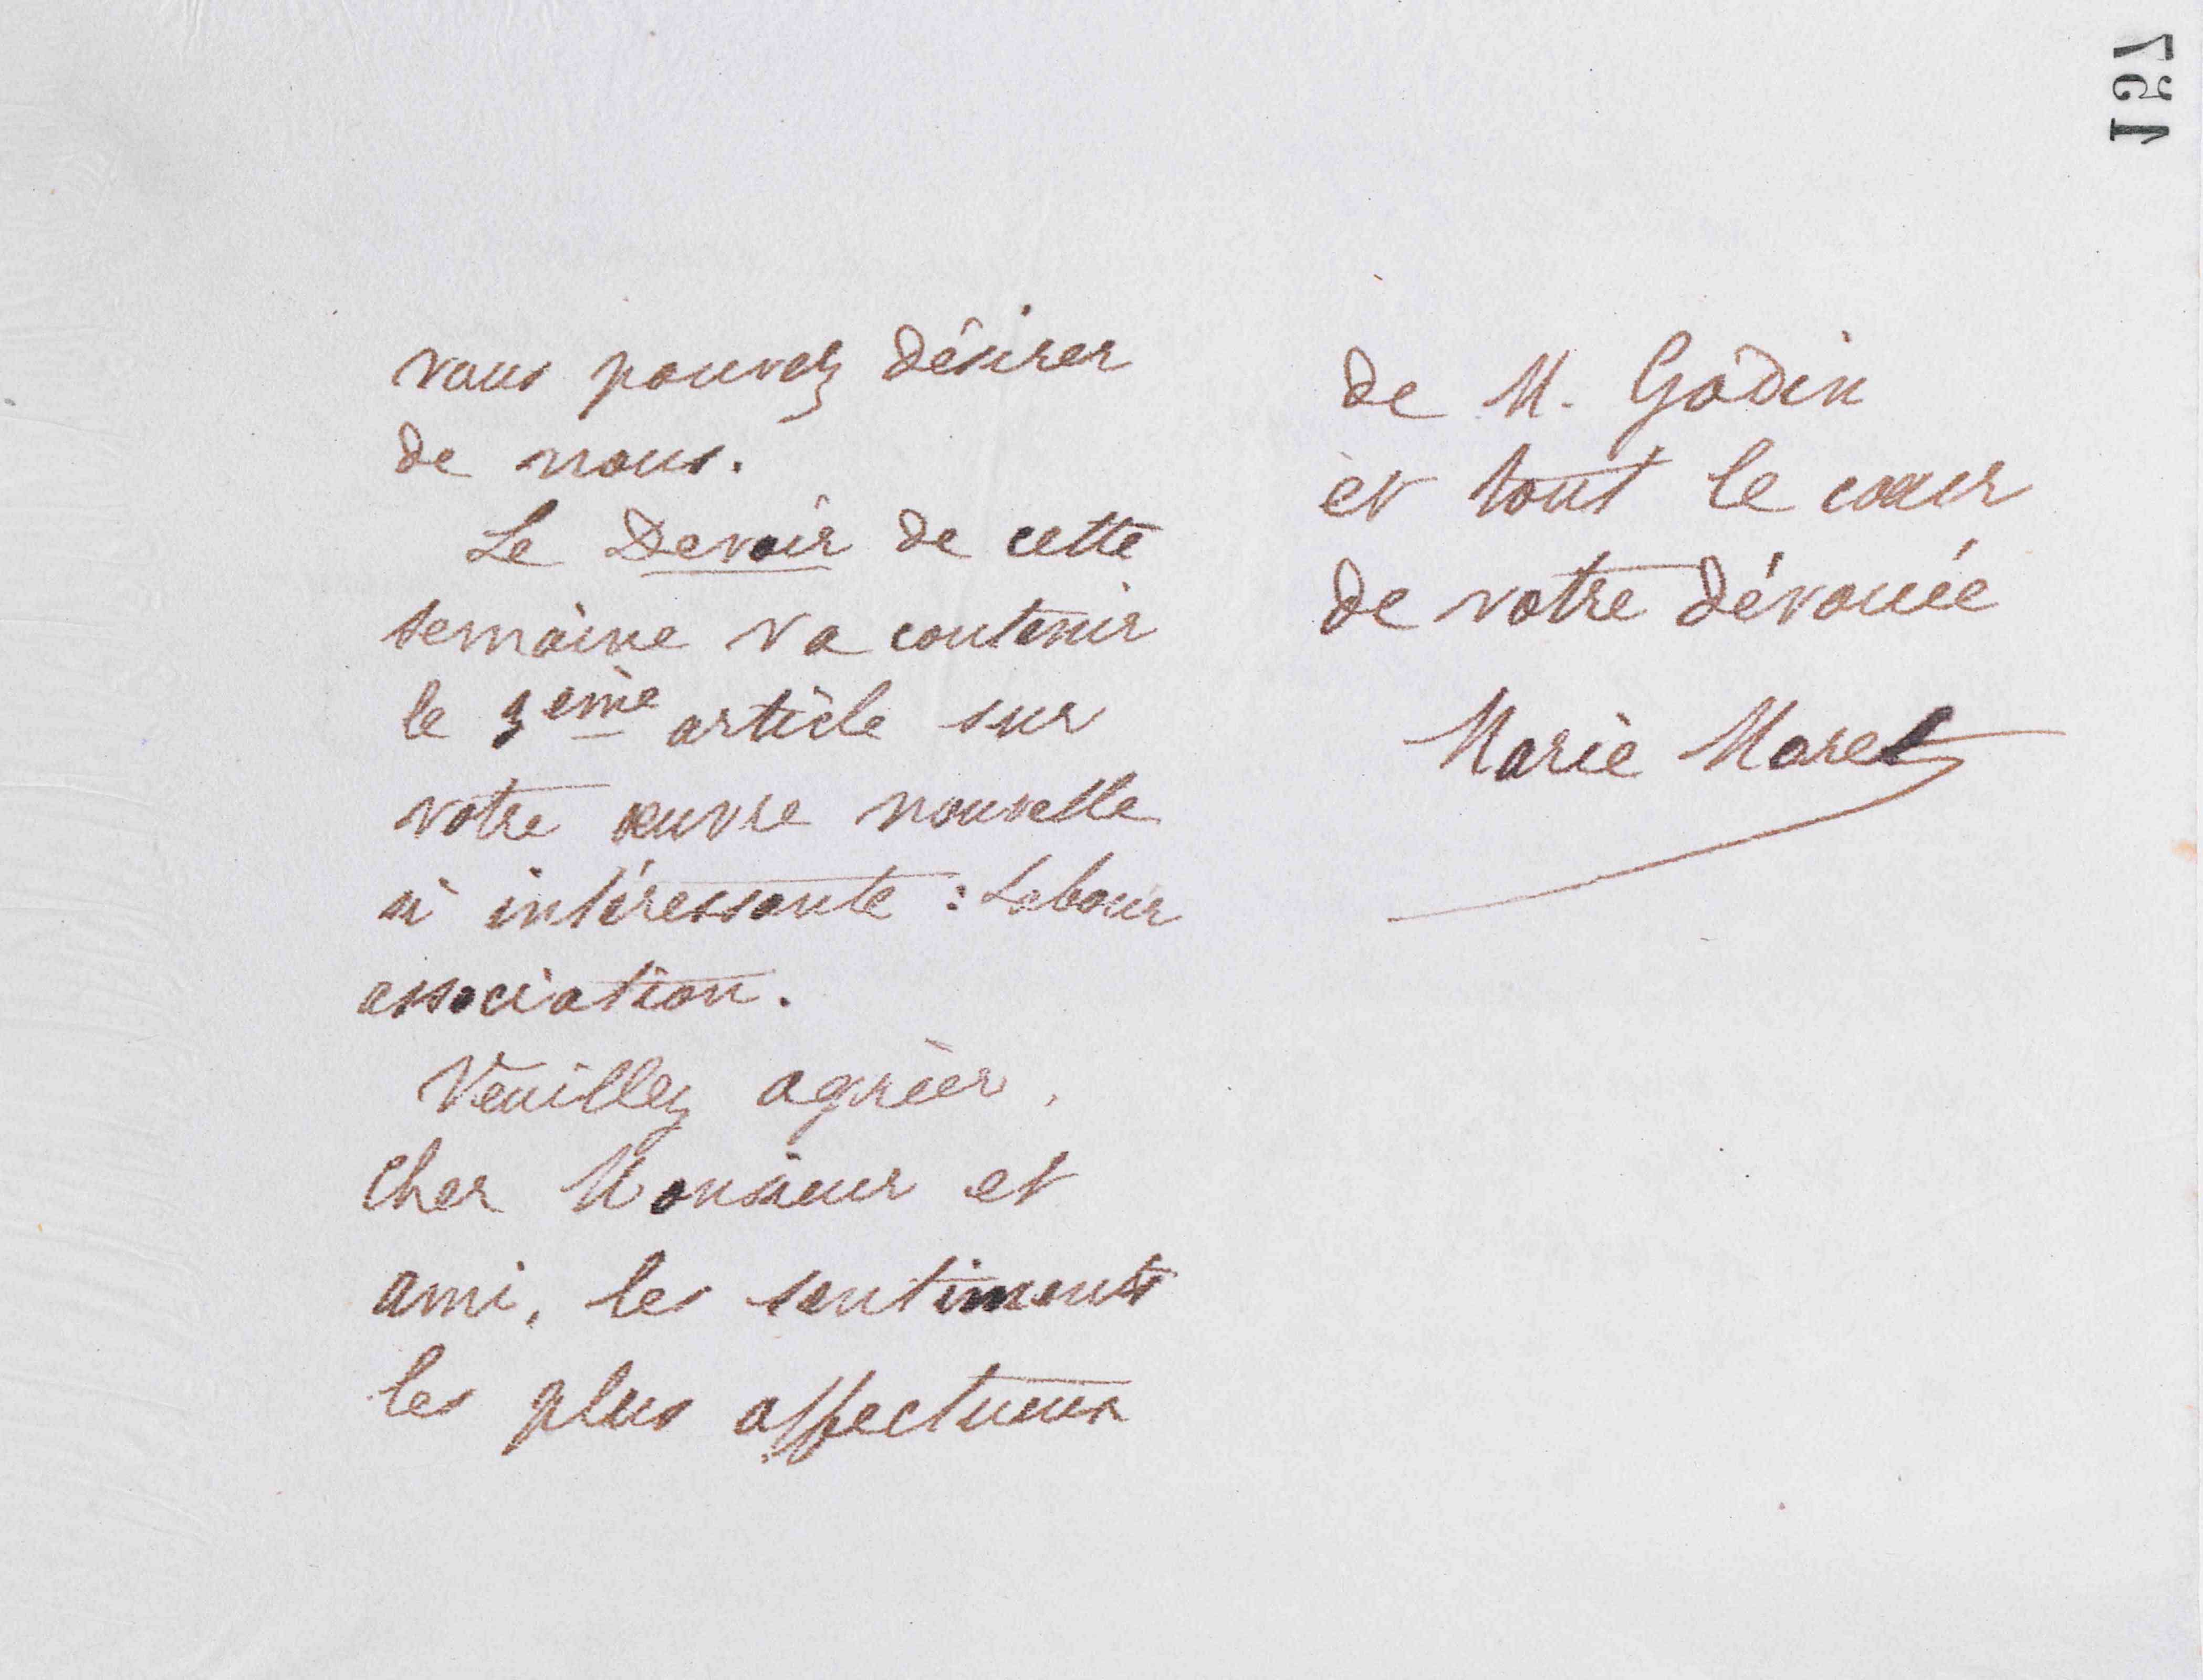 157
vous pouvez désirer
de nous.
Le Devoir de cette
semaine va contenir
le 3ème article sur
votre œuvre nouvelle
si intéressante : Labour
association.
Veuillez agréer,
Cher Monsieur et
ami, les sentiments
les plus affectueux
de M. Godin
et tout le cœur
de votre dévouée
Marie Moret